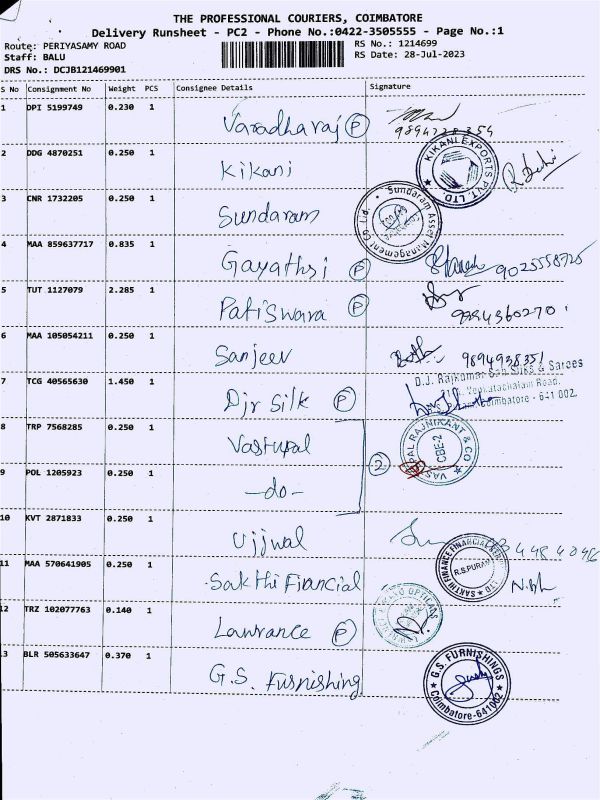 THE PROFESSIONAL COURIERS, COIMBATORE
Delivery Runsheet - PC2 - Phone No.:0422-3505555 - Page No.:1
Route: PERIYASAMY ROAD
RS No.: 1214699
Staff: BALU
RS Date: 28-Jul-2023
DRS No.: DCJB121469901
S No Consignment No Weight PCS Consignee Details Signature
1 DPI 5199749 0.230 1 Varadharaj P
2 DDG 4870251 0.250 1 Kikani
KIKANI EXPORTS PVT. LTD.
3 CNR 1732205 0.250 1 Sundaram
Sundaram Asset Management Co Ltd.
4 MAA 859637717 0.835 1 Gayathri P
9025558725
5 TUT 1127079 2.285 1 Patiswara P
9994360270
6 MAA 105054211 0.250 1 Sanjeev 9894938351
7 TCG 40565630 1.450 1 Djr Silk P
D.J. Rajkumar Silks & Sarees
Venkatachalam Road,
Coimbatore - 641 002.
8 TRP 7568285 0.250 1 Vastupal
2
VASTUPAL RAJNIKANT & CO
CBE-2
9 POL 1205923 0.250 1 -do-
10 KVT 2871833 0.250 1 Ujjwal
11 MAA 570641905 0.250 1 Sakthi Financial
SAKTHI FINANCE FINANCIAL
R.S.PURAM
12 TRZ 102077763 0.140 1 Lawrance P
OPTICIANS
13 BLR 505633647 0.370 1 G.S. Furnishing
G.S. FURNISHINGS
Coimbatore-641002